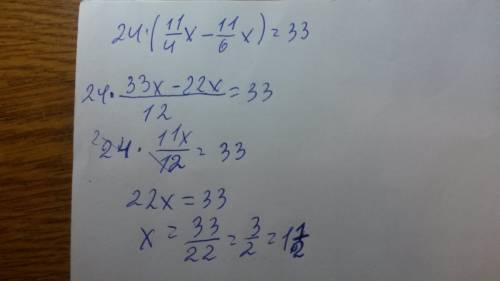 24·(11/4x − 11/6x) = 33
24·(33x − 22x)/12 = 33
²24 · 11x/12 = 33
22x = 33
x = 33/22 = 3/2 = 1 1/2